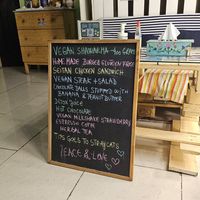 VEGAN SHAWARMA - 200 GRAMS
HOME MADE BURGER & LENTIL FRIES
SEITAN CHICKEN SANDWICH
VEGAN STEAK + SALAD
CHOCOLATE BALLS STUFFED WITH
BANANA & PEANUT BUTTER
DETOX JUICE
HOT CHOCOLATE
VEGAN MILKSHAKE STRAWBERRY
ESPRESSO COFFEE
HERBAL TEA
TIPS GOES TO STRAY CATS
PEACE & LOVE